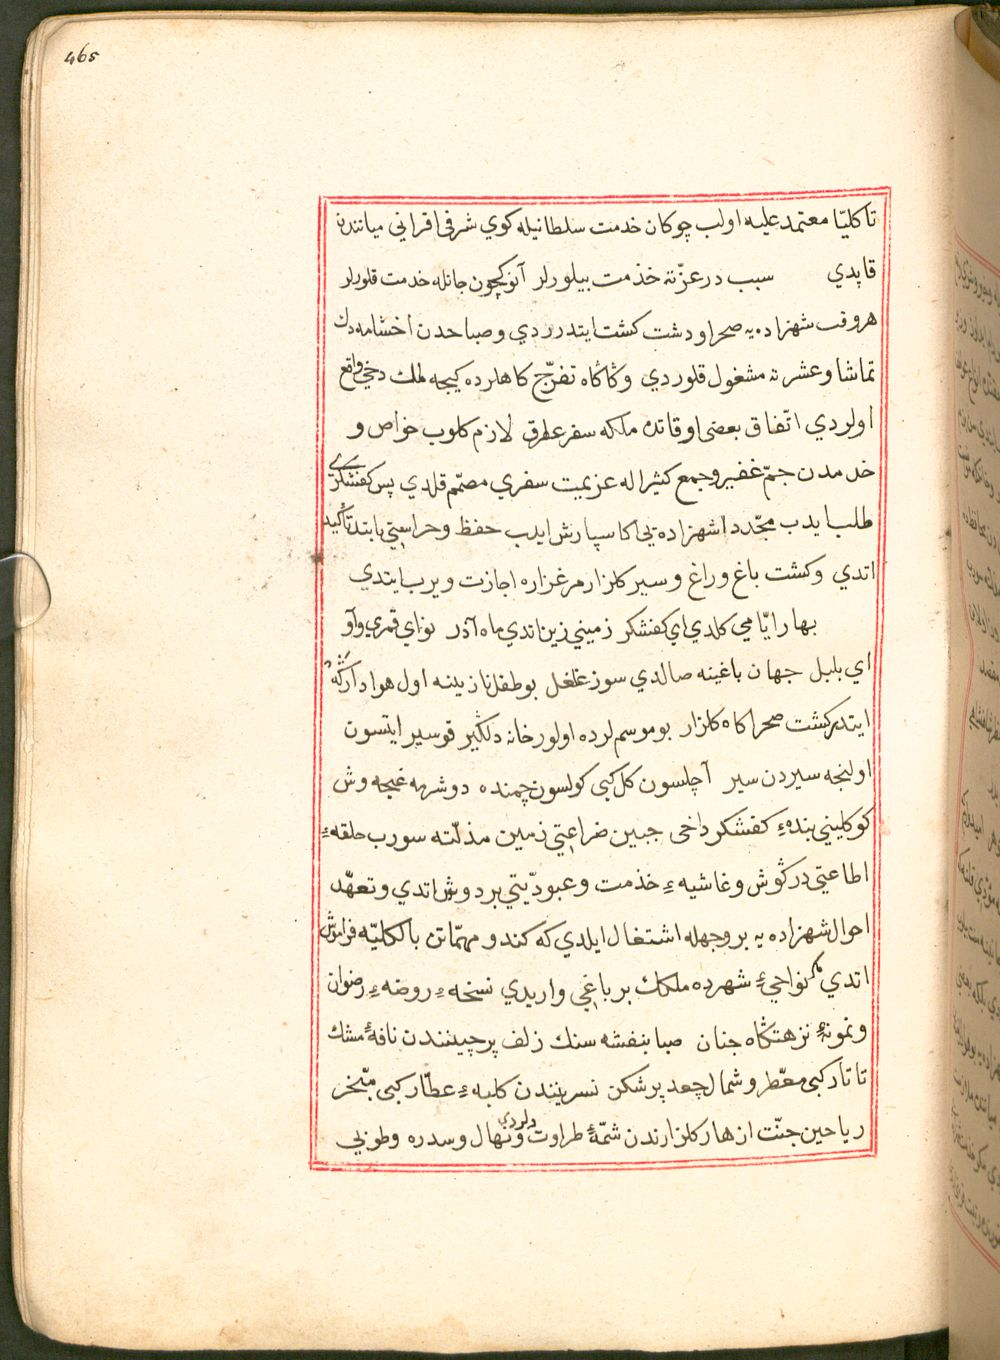 465
تا كليّا معتمد عليه اولب چوكان خدمت سلطانيله كوي شرفي اقراني ميانندن
قاپدي سبب در عزّته خذمت بيلورلر آنوكچون جانله خدمت قلورلر
هر وقت شهزاده يه صحرا و دشت كشت ايتدرردي و صباحدن اخشامه دك
تماشا و عشرته مشغول قلوردي و كاكاه تفرّج كاهلرده كيجه لمك دخي واقع
اولردي اتّفاق بعضي اوقاتده ملكه سفر عطرق لازم كلوب خواص و
خدمدن جمّ غفير و جمع كثير اله عزيمت سفري مصمّم قلدي پس كفشكري
طلب ايدب مجّددا شهزاده يي اكا سپارش ايدب حفظ و حراستي بابنده تأكيد
اتدي و كشت باغ و راغ و سير كلزار مرغزاره اجازت ويرب ايتدي
بهار ايّامي كلدي اي كفشكر زميني زين اتدي ماه آذر نواي قمري و آو
اي بلبل جهان باغينه صالدي سوز غلغل بو طفل نازينه اول هوادار كه
ايتدر كشت صحرا كاه كلزار بو موسملرده اولور خانه دلكير قو سير ايتسون
اولنجه سيردن سير آچلسون كل كبي كولسون چمنده دوشرمه غنجه وش
كوكليني بنده ء كفشكر داخى جبين ضراعتي زمين مذلّته سورب حلقه ء
اطاعتي در كوش و غاشيه ء خذمت و عبوديّتي بر دوش اتدي و تعهّد
احوال شهزاده يه بر وجهله اشتغال ايلدي كه كندو مهمّاتن بالكليّه فراموش
اتدي مكر نواحيء شهرده ملكك بر باغي واريدي نسخه ء روضه ء رضوان
و نمونهٔ نزهتكاه جنان صبا بنفشه سنك زلف پرچينندن نافهٔ مشك
تاتار كبي معّطر و شمال جعد پرشكن نسرينندن كلبه ء عطّار كبي مبّخر
رياحين جنّت ازهار كلزارندن شمّهٔ طراوت دلردي و نهال و سدره و طوبي